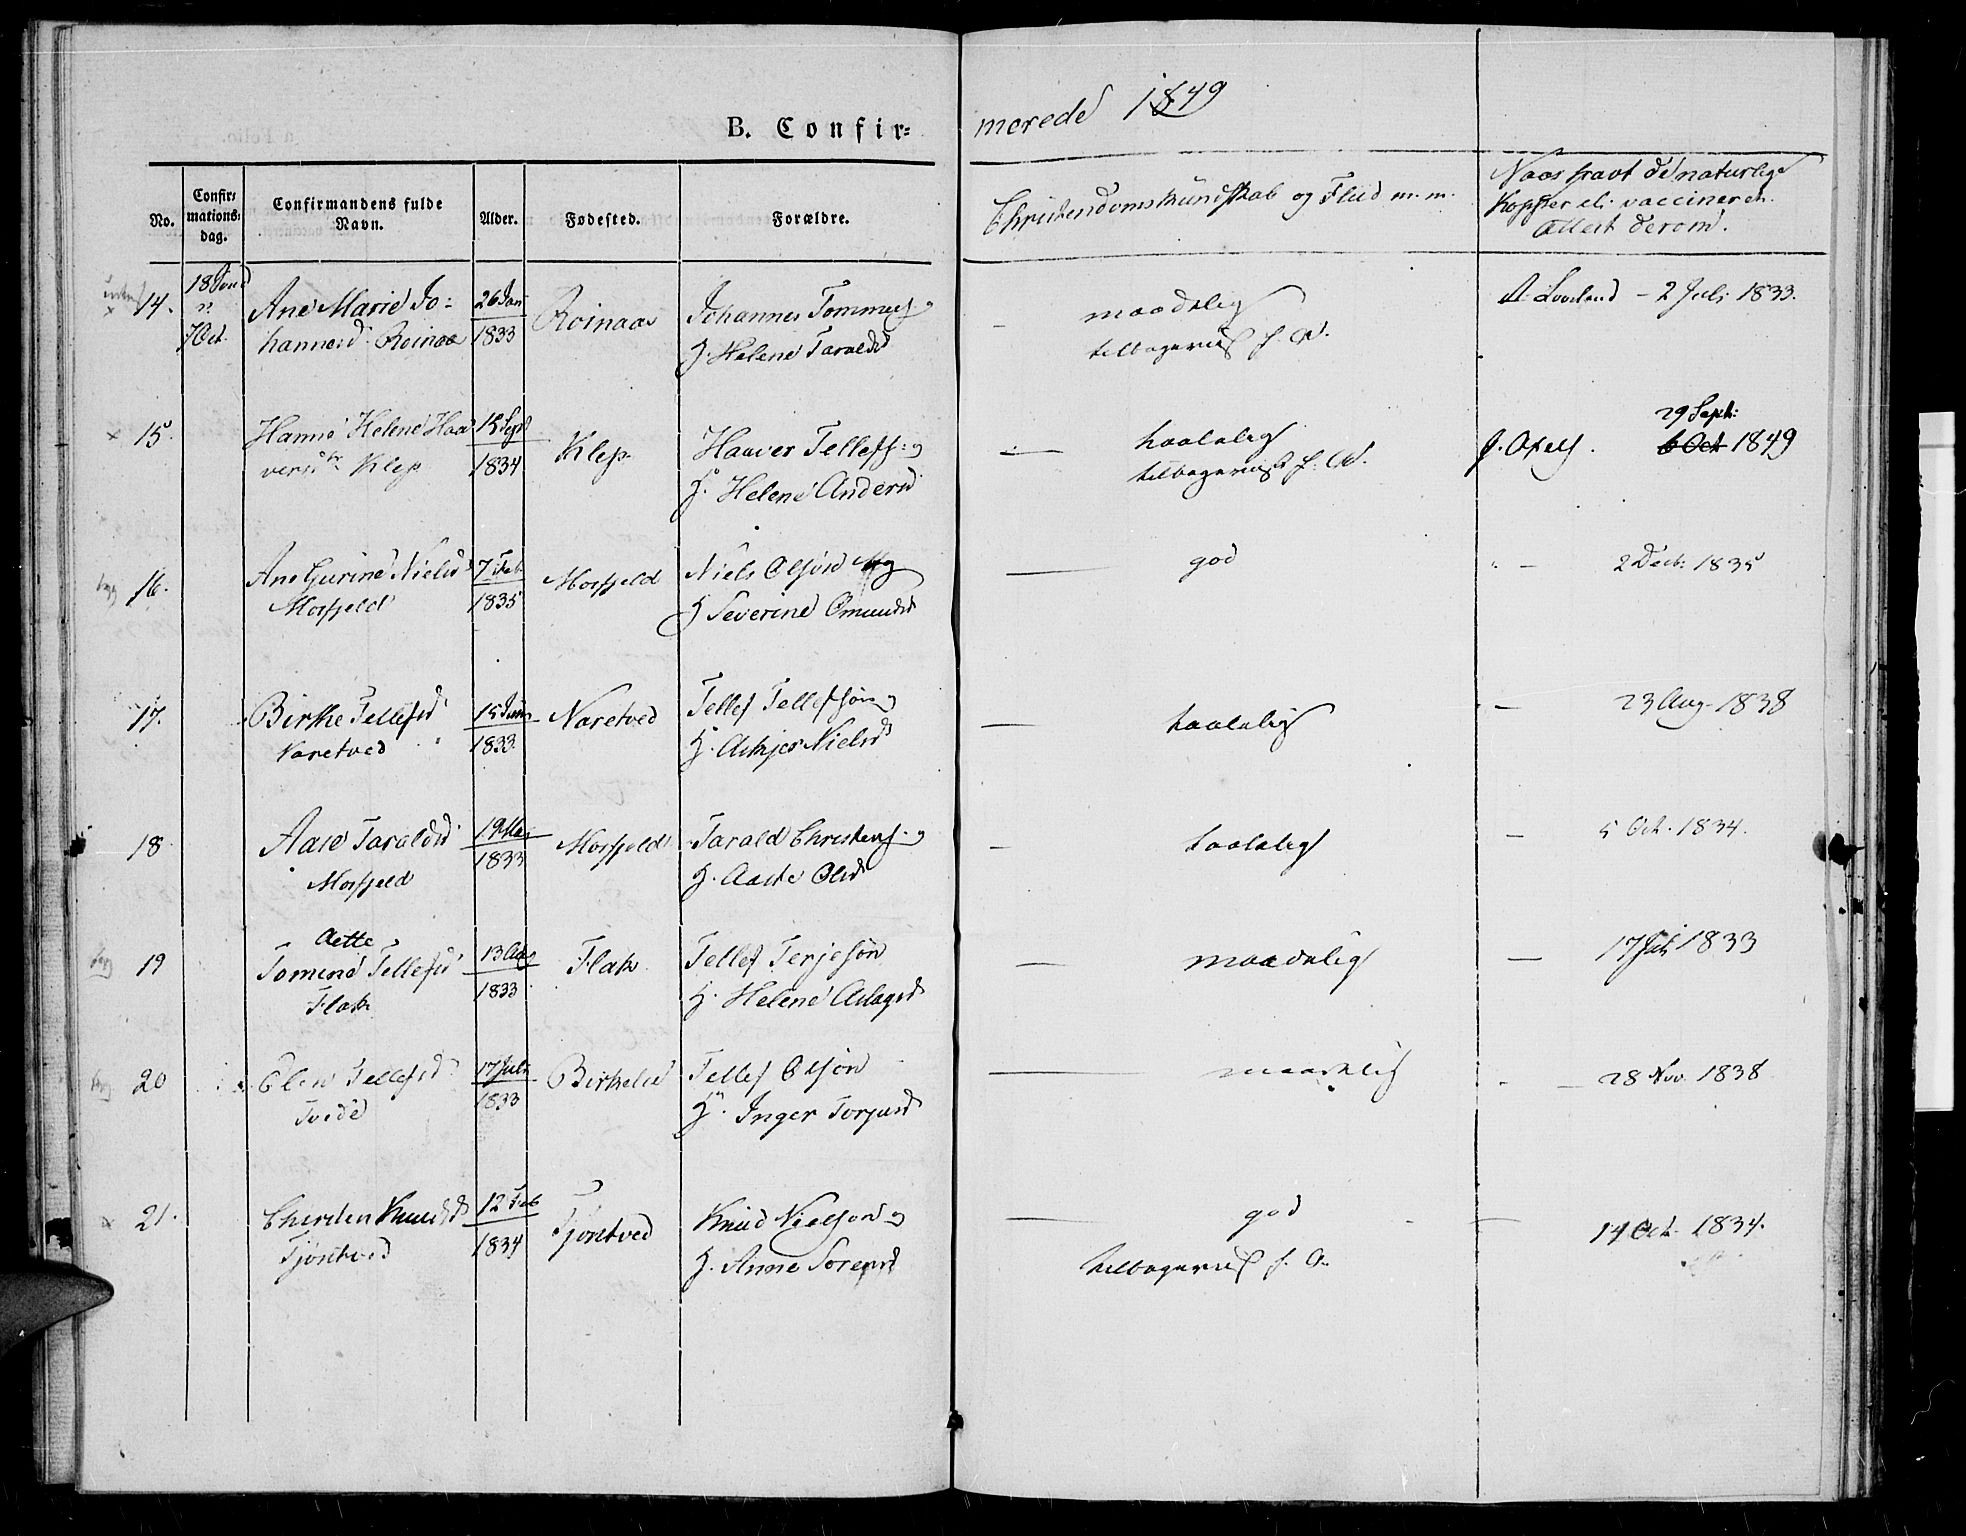 B. Confir=
merede 1849
No.
Confir=
mations=
dag.
Confirmandens fulde
Navn.
Alder.
Fødested.
Forældre.
Christendomskundskab og Flid m. m.
Naar havt de naturlige
Kopper el. vaccineret.
Attest derom.
14.
18 Sønd
7 Oct.
Ane Marie Jo=
hannesd. Roinaas
26 Jan
1833
Roinaas
Johannes Tommes
H. Helene Taraldsd
maadelig
A. Lovland – 2 Juli 1833.
15.
Hanne Helene Haa
versdtr Klep
15 Sept
1834
Klep
Haaver Tellefs: og
H. Helene Andersd
taalelig
29 Sept:
6 Oct 1849
16.
Ane Gurine Nielsd
Mosfjeld
7 Feb.
1835
Mosfjeld
Niels Olsøn og
H Severine Omundsd
god
2 Decb: 1835
17.
Birthe Tellefsd
Naretved
15 Juni
1833
Naretved
Tellef Tellefsøn og
H. Askjer Nielsd
taalelig
23 Aug. 1838
18
Aase Taraldsd
Mosfjeld
19 Mai
1833
Mosfjeld
Tarald Christens. og
H. Aaste Olsd
taalelig
5 Oct. 1834.
19
Aette
Tomine Tellefsd
Flak
13 Aug
1833
Flak
Tellef Terjesøn
H. Helene Aslagsd
maadelig
17 Juli 1833
20
Elen Tellefsd
Tvede
17 Juli
1833
Birkelid
Tellef Olsøn
H. Inger Torjusd
maadelig
28 Nov. 1838
21.
Chirsten Knudsd
Tjøntved
12 Feb
1834
Tjøntved
Knud Nielsøn og
H. Anne Sorensd
god
14 Oct. 1834.